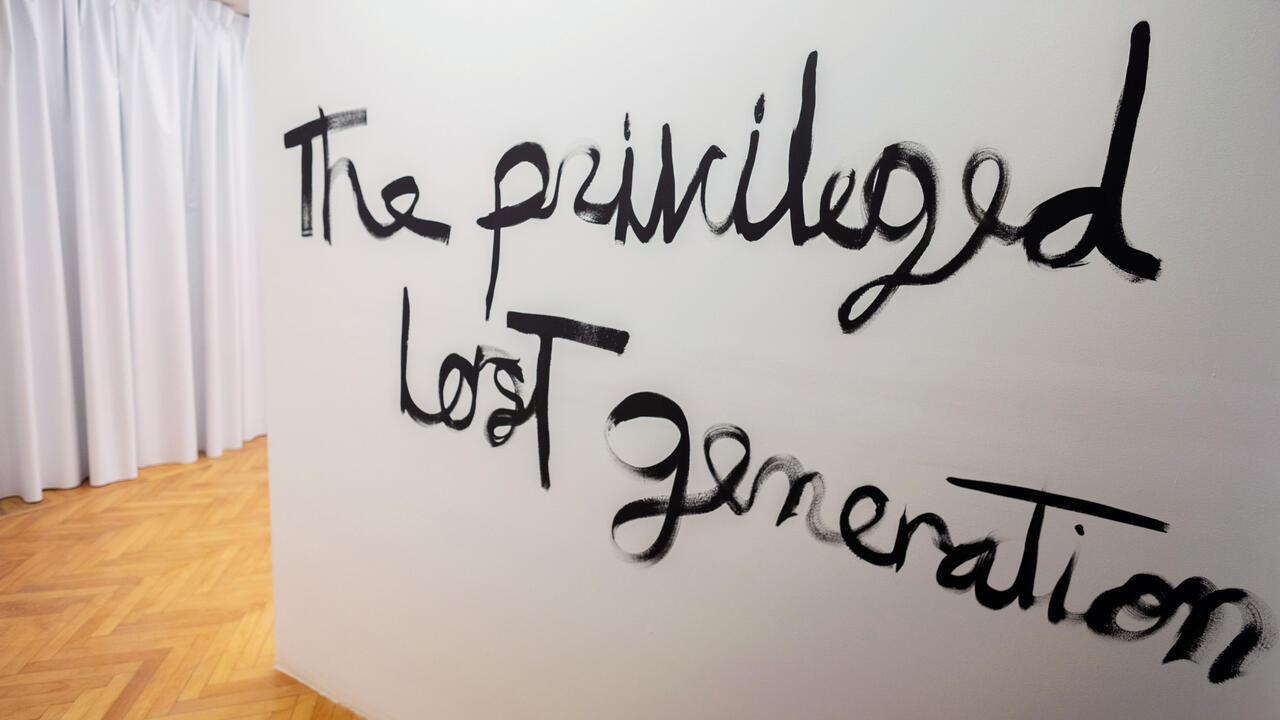 The privileged
lost generation